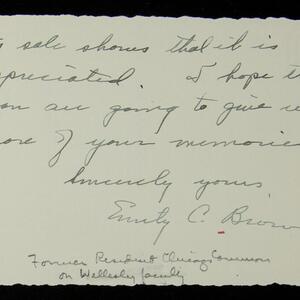 s sale shows that it is
preciated. I hope t
ou are going to give u
ore of your memories
Sincerely yours,
Emily C. Brow
Former Resident Chicago Commons
on Wellesley faculty